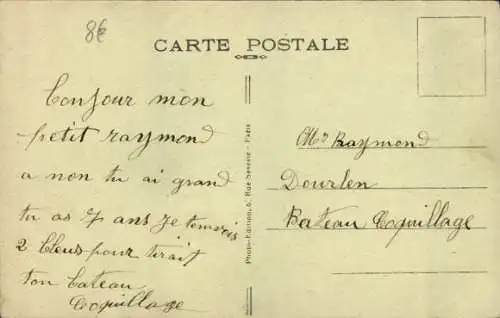 8€
CARTE POSTALE
bonjour mon
petit raymond
a non tu ai grand
tu as 7 ans je
2 bleus pour tirait
ton bateau
Coquillage
Photo-Edition, 6, Rue Séverine - Paris
Mr Raymond
Dourlen
Bateau Coquillage